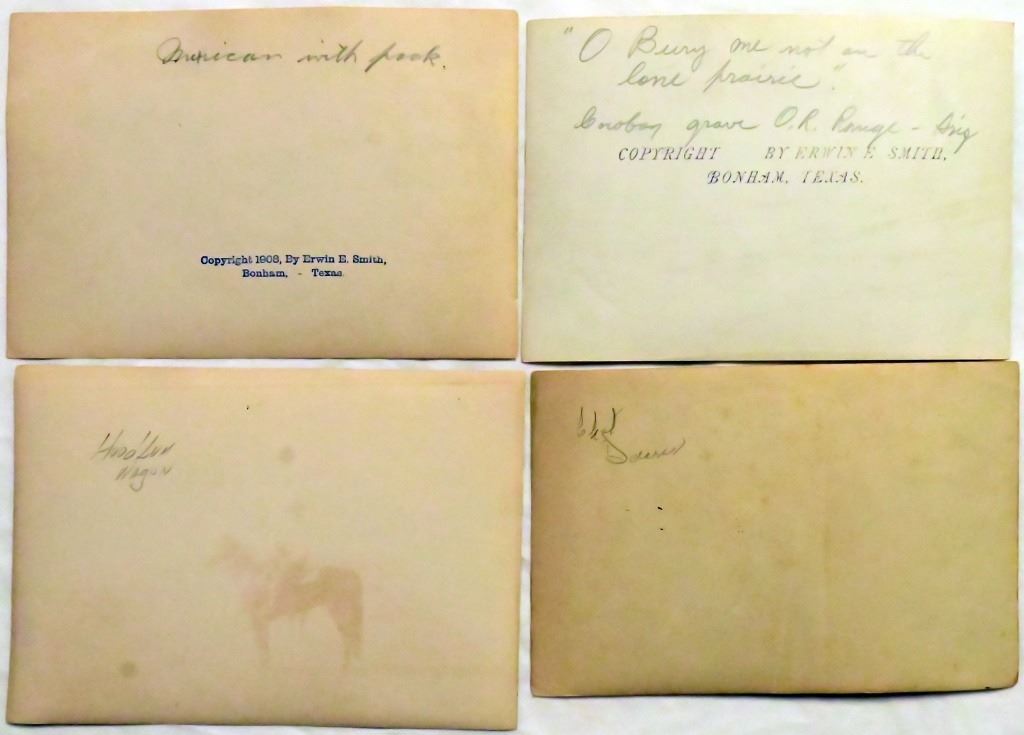 Mexican with pack.
Copyright 1908, By Erwin E. Smith,
Bonham, - Texas.
"O Bury me not on the
lone prairie".
Cowboy grave O.R. Range - Ariz
COPYRIGHT BY ERWIN E SMITH,
BONHAM, TEXAS.
Hood'lum
Wagon